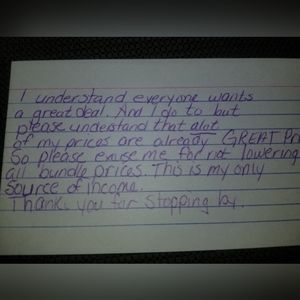 I understand everyone wants
a great deal. And I do to but
please understand that alot
of my prices are already GREAT Pri
So please excuse me for not lowering
all bundle prices. This is my only
source of income.
Thank you for stopping by.